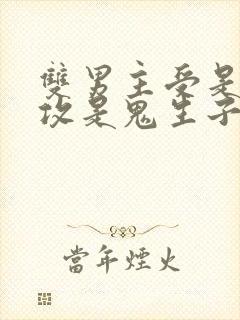 雙男主受是
攻是鬼生子
當年煙火